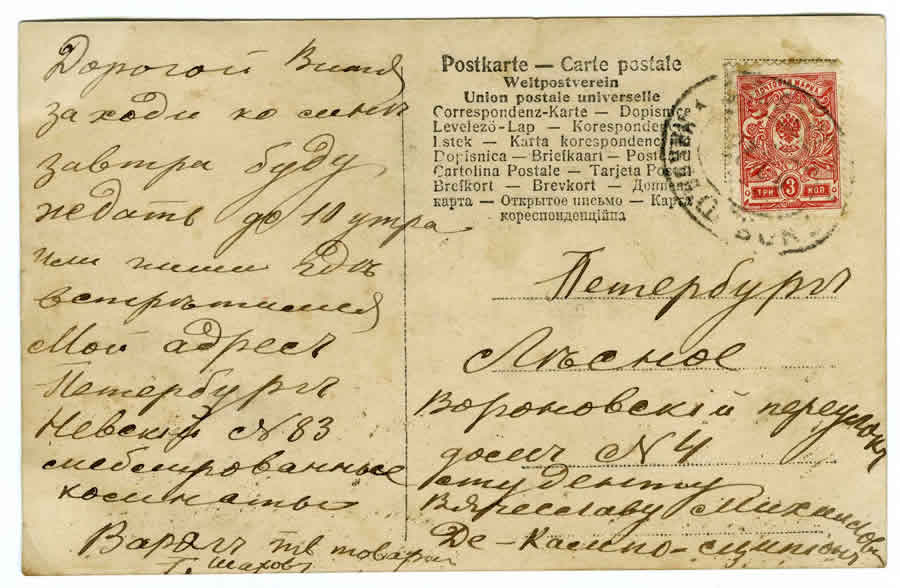 Дорогой Витя
заходи ко мнѣ
завтра буду
ждать до 10 утра
или пиши гдѣ
встрѣтимся
Мой адресъ
Петербургъ
Невскій № 83
меблированные
комнаты
Postkarte — Carte postale
Weltpostverein
Union postale universelle
Correspondenz-Karte — Dopisnice
Levelező-Lap — Korespondenč
Lstek — Karta korespondenc
Dopisnica — Briefkaari — Poste
Cartolina Postale — Tarjeta Post
Brefkort — Brevkort — Дописна
карта — Открытое письмо — Карта
кореспонденційна
ПОЧТОВАЯ МАРКА
ТРИ 3 КОП.
Петербургъ
Лѣсное
Вороновскій переулокъ
домъ № 4
студенту
Вячеславу Михайлов